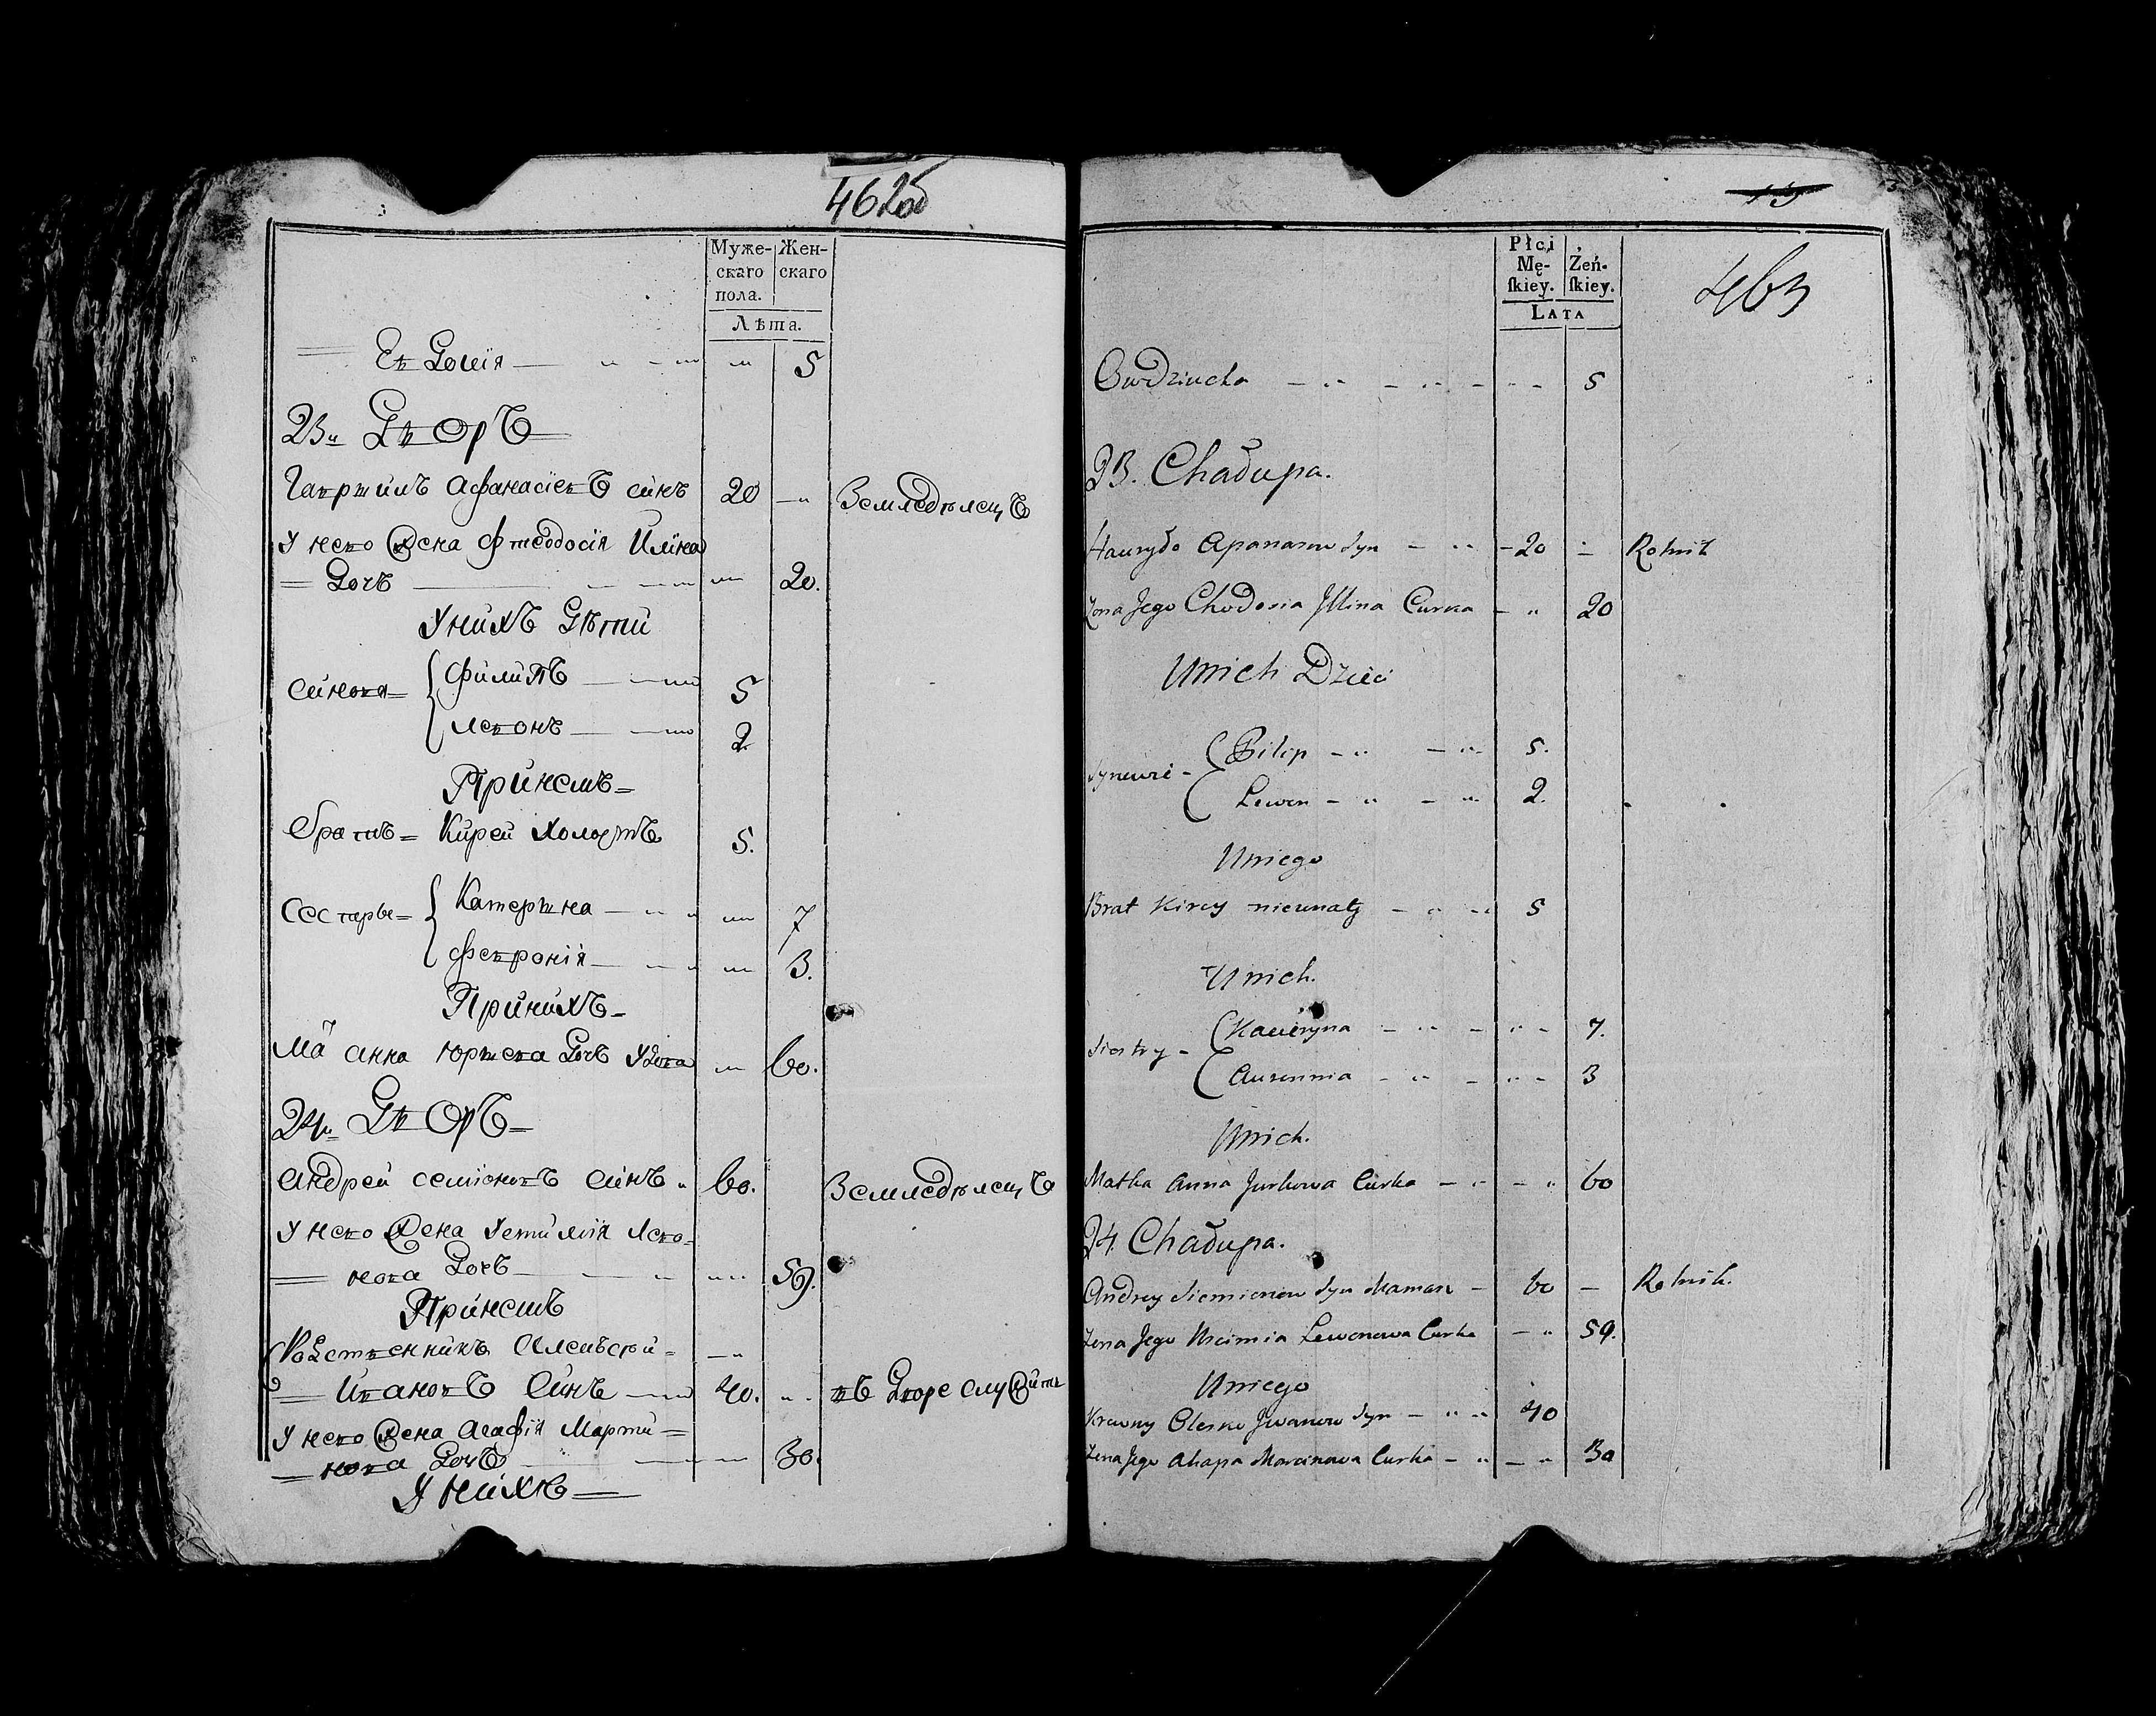 462об
Муже-
скаго
пола.
Жен-
скаго
Лѣта.
Евдокія 5
23. Дворъ
Гаврило Афанасіевъ синъ 20 Земледѣлецъ
У него жена Фтеодосія Илїна
дочъ 20.
У нихъ дѣти
синовя Филипъ 5
Левонъ 2
При немъ
братъ Кирей холостъ 5.
Сестры Катерина 7
Февронія 3.
При нихъ
Анна дочъ вдова 60.
24. Дворъ
Андрей Семіоновъ синъ 60. Земледѣлецъ
У него жена Лево-
нова дочъ 59.
При немъ
Родственникъ Алексѣй
Ивановъ синъ 40. въ дворе служитъ
У него жена Агафія Марти-
нова дочъ 30.
У нихъ
13
463
Płci
Mę-
ſkiey.
Żeń-
ſkiey.
LATA
Owdziucha 5
23. Chałupa.
Hauryło Apanasow Syn 20 Rolnik
Zona Jego Chodosia Illina Curka 20
Unich Dzieci
Synowie Pilip 5.
Lewon 2.
Uniego
Brat Kirey niewnaty 5
Unich.
Siostry Kacieryna 7.
3
Unich.
Matka Anna Jurkowa Curka 60
24. Chałupa.
Andrey Siemionow Syn 60 Rolnik.
Zona Jego Lewonowa Curka 59.
Uniego
Krewny Olesko Jwanow Syn 40
Zona Jego Ahapa Marcinowa Curka 30